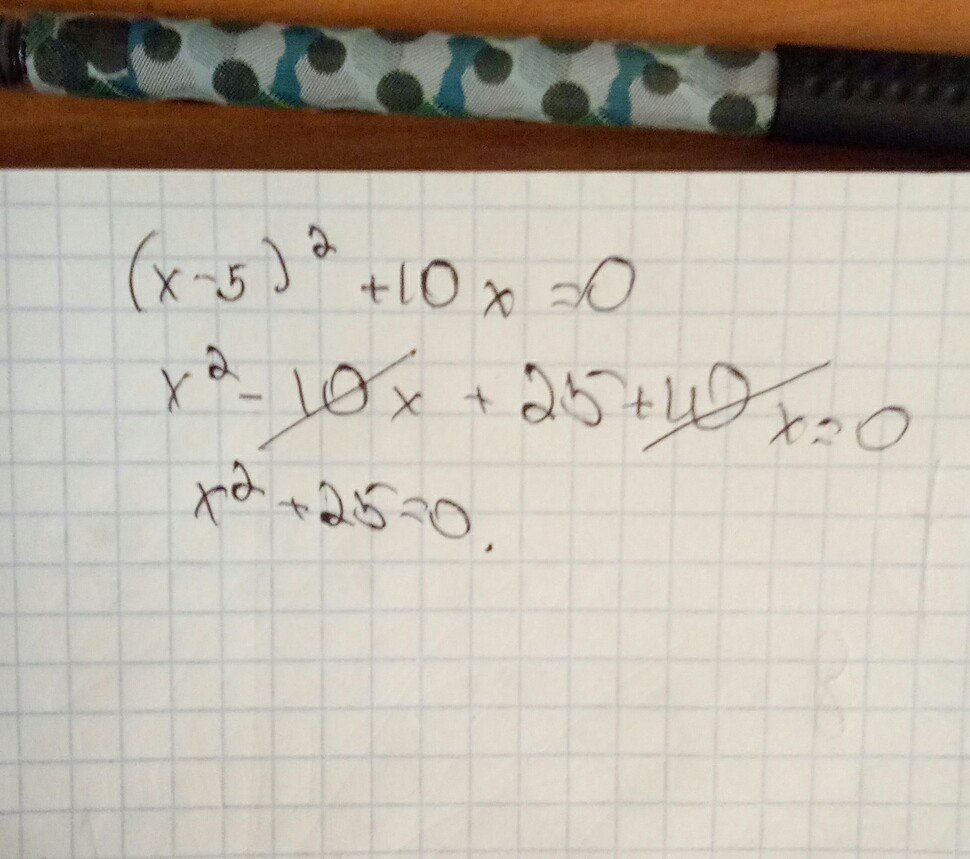 (x-5)² +10x=0
x²-10x+25+10x=0
x²+25=0.